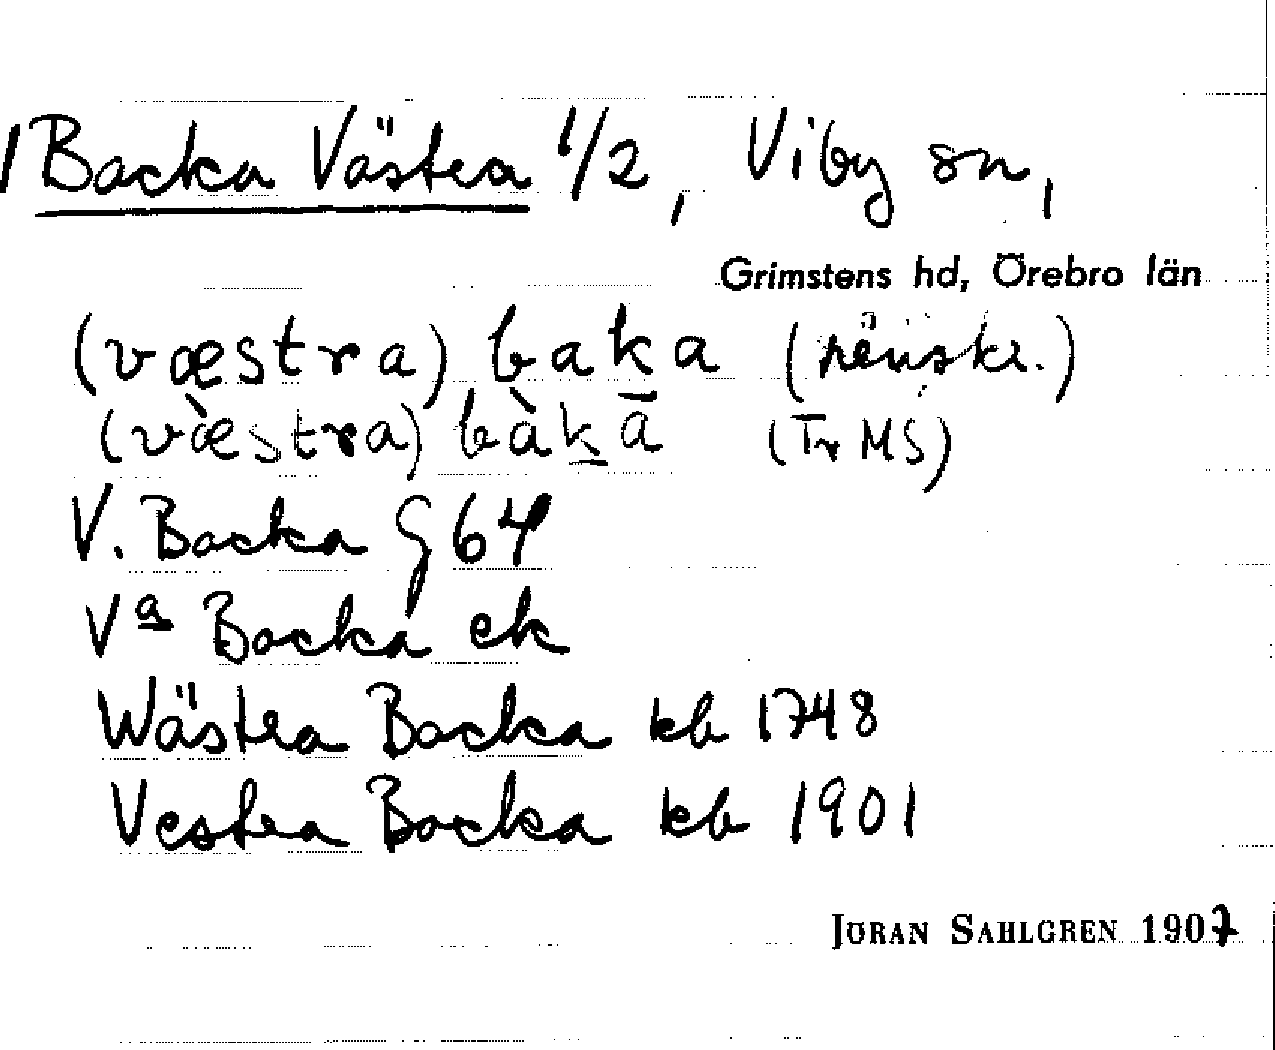 Backa Västra 1/2, Viby sn,
Grimstens hd, Örebro län
(væstra) baka (rẽnskr.)
(væ̀stra) bàka̅ (Tr MS)
V. Backa G 64
Vª Backa ek
Wästra Backa kb 1748
Vestra Backa kb 1901
JÖRAN SAHLGREN 1907